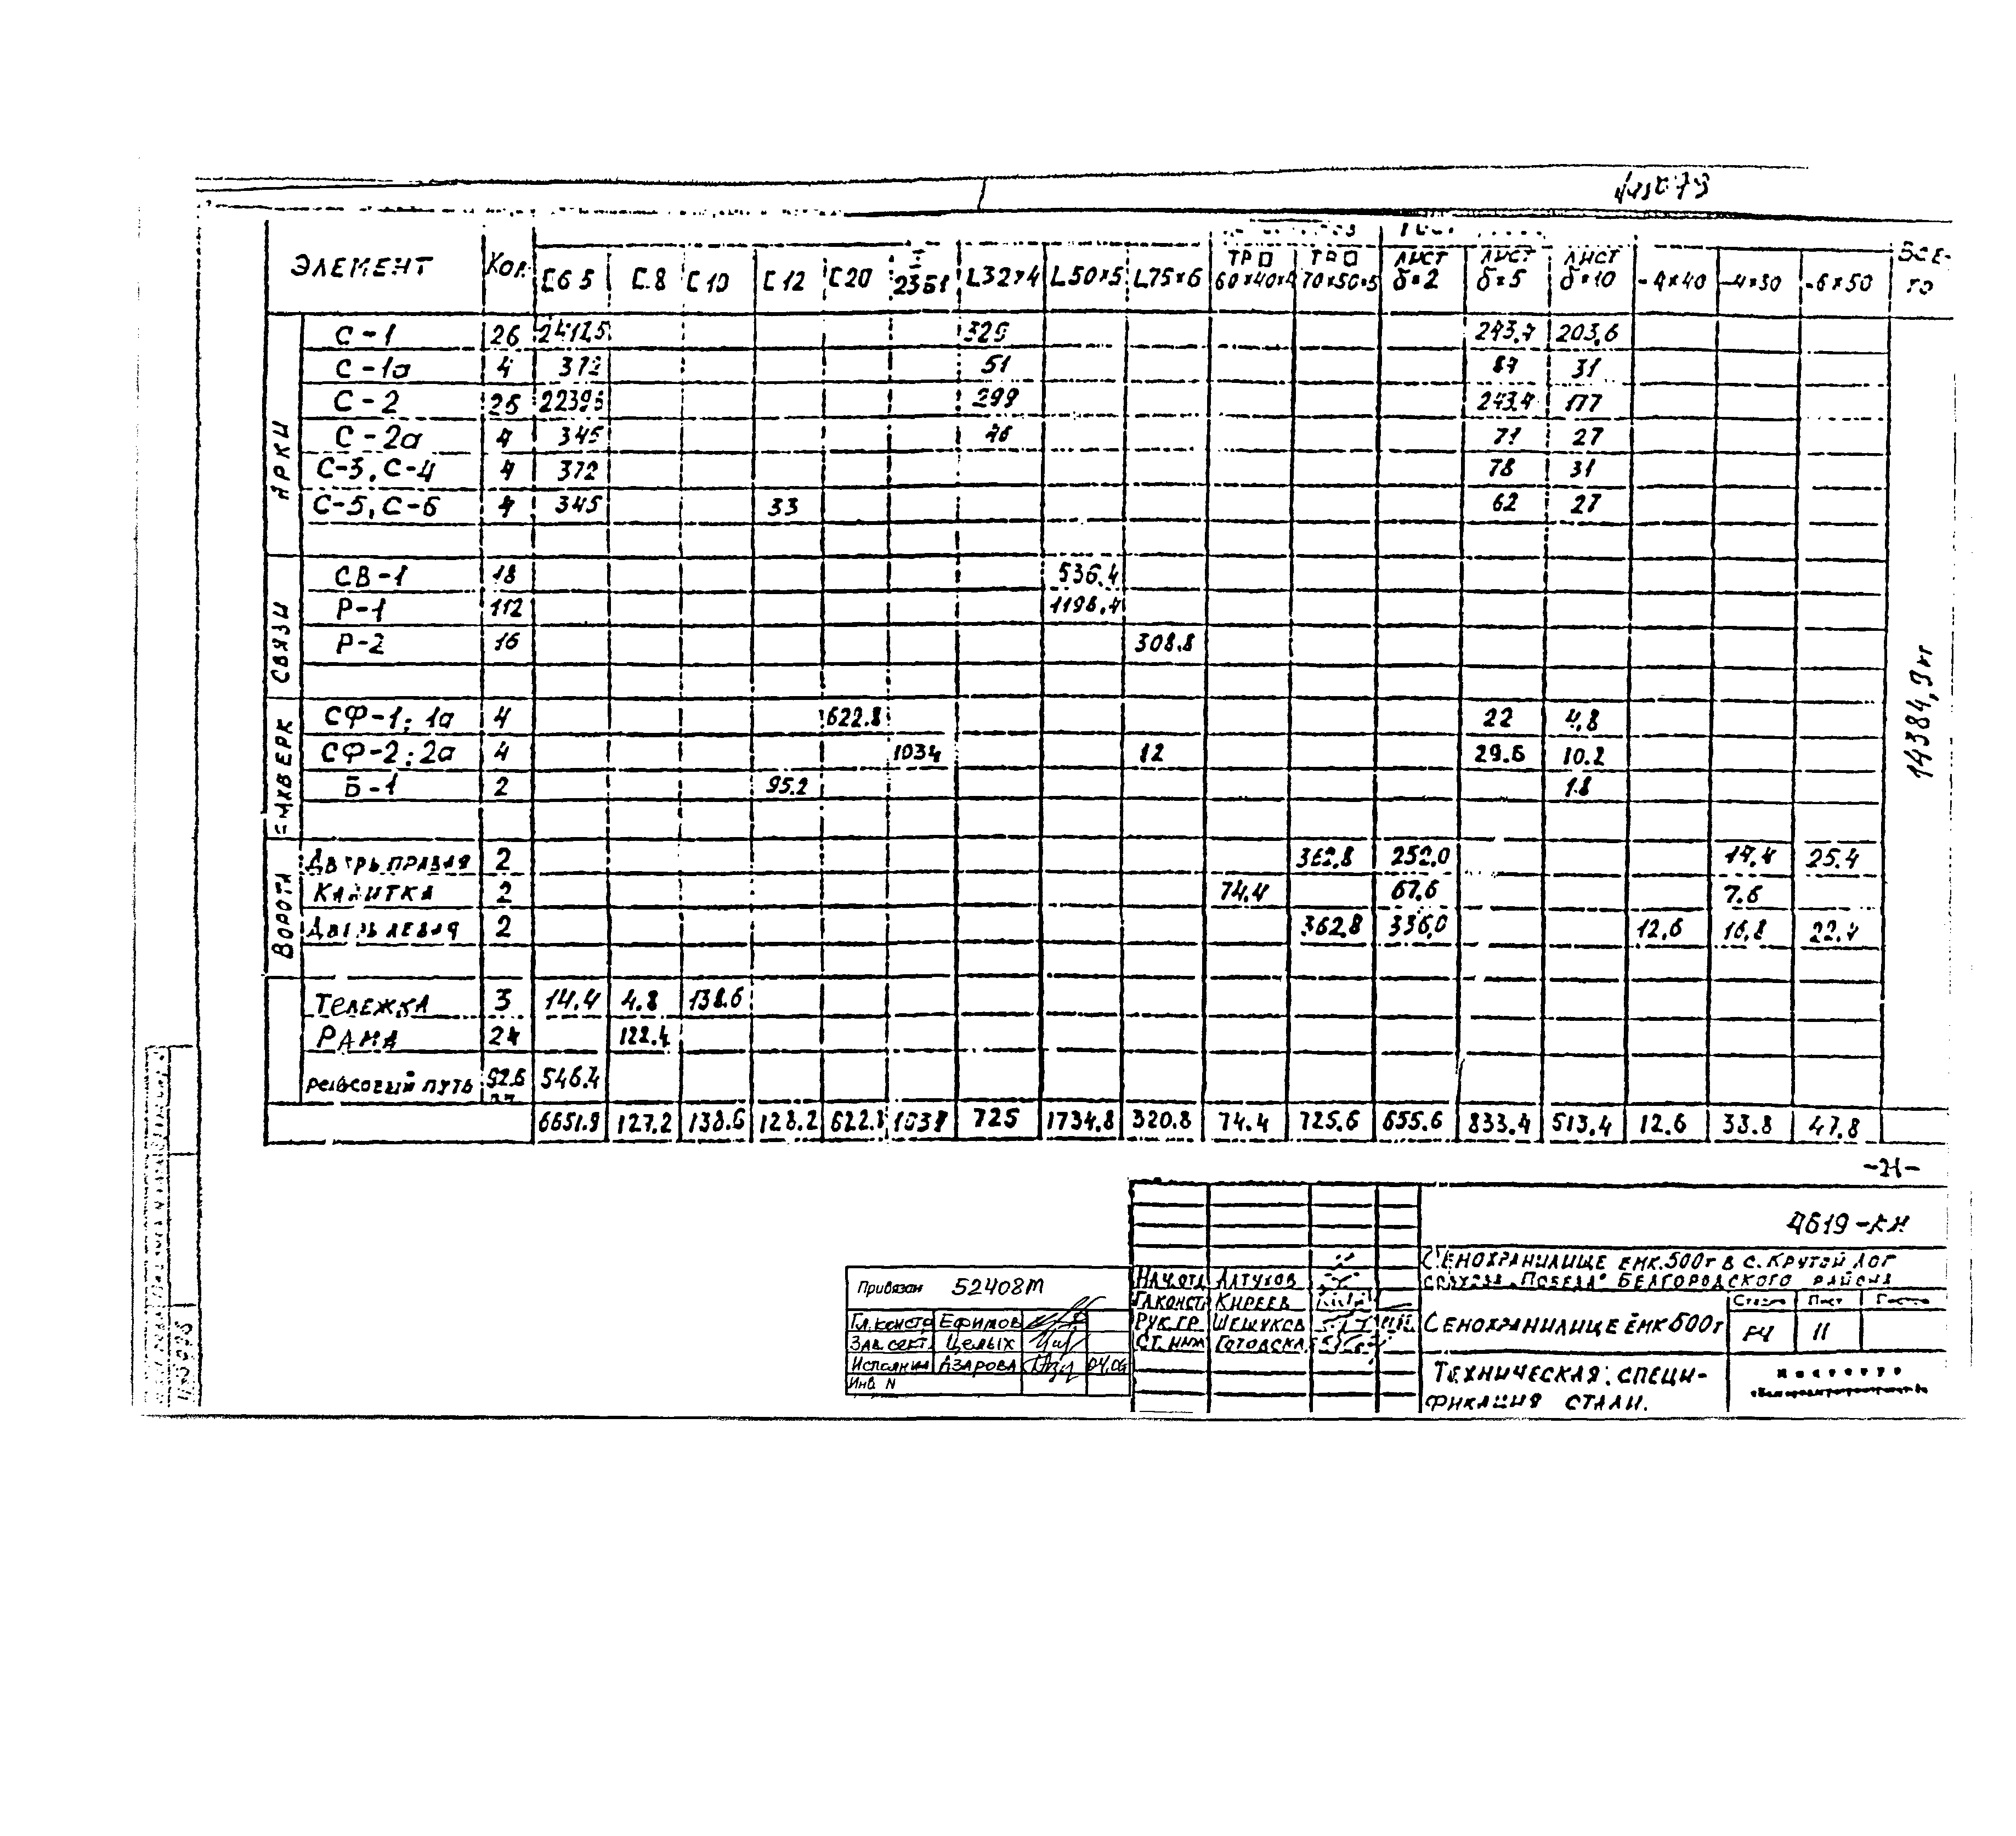 ЭЛЕМЕНТ Кол. [6 5 [ 8 [ 10 [ 12 [ 20 I 23Б1 L32×4 L50×5 L75×6 ТР □ 60×40×4 ТР □ 70×50×5 ЛИСТ δ=2 ЛИСТ δ=5 ЛИСТ δ=10 -4×40 -4×30 -6×50 ВСЕГО
АРКИ
С-1 26 2412.5 329 243.4 203.6
С-1а 4 372 51 87 31
С-2 26 2239.6 299 243.4 177
С-2а 4 345 46 71 27
С-3, С-4 4 372 78 31
С-5, С-6 4 345 33 62 27
СВЯЗИ
СВ-1 18 536.4
Р-1 112 1198.4
Р-2 16 308.8
ФАХВЕРК
СФ-1; 1а 4 622.8 22 4,8
СФ-2; 2а 4 1034 12 29.6 10.2
Б-1 2 95.2 1.8
ВОРОТА
Дверь правая 2 362.8 252.0 25.4
Калитка 2 74.4 67.6 7.6
Дверь левая 2 362.8 336.0 12.6 16.8 22.4
Тележка 3 14.4 4.8 138.6
Рама 24 122.4
рельсовый путь 92.6 546.4
6651.9 127.2 138.6 128.2 622.8 725 1734.8 320.8 74.4 725.6 655.6 833.4 513.4 12.6 33.8 47.8
14384,9 кг
-21-
4619-КМ
СЕНОХРАНИЛИЩЕ ЕМК.500т В С. КРУТОЙ ЛОГ
СОВХОЗА "ПОБЕДА" БЕЛГОРОДСКОГО РАЙОНА
СЕНОХРАНИЛИЩЕ ЕМК 500т
Стадия Лист Листов
РЧ 11
ТЕХНИЧЕСКАЯ СПЕЦИ-
ФИКАЦИЯ СТАЛИ.
Нач.отд. Алтухов
Гл.констр Киреев
Рук.гр. Шешуков
Ст. инж
Привязан 52408М
Гл.констр Ефимов
Зав.сект. Целых
Исполнил Азарова 04.06
Инв N